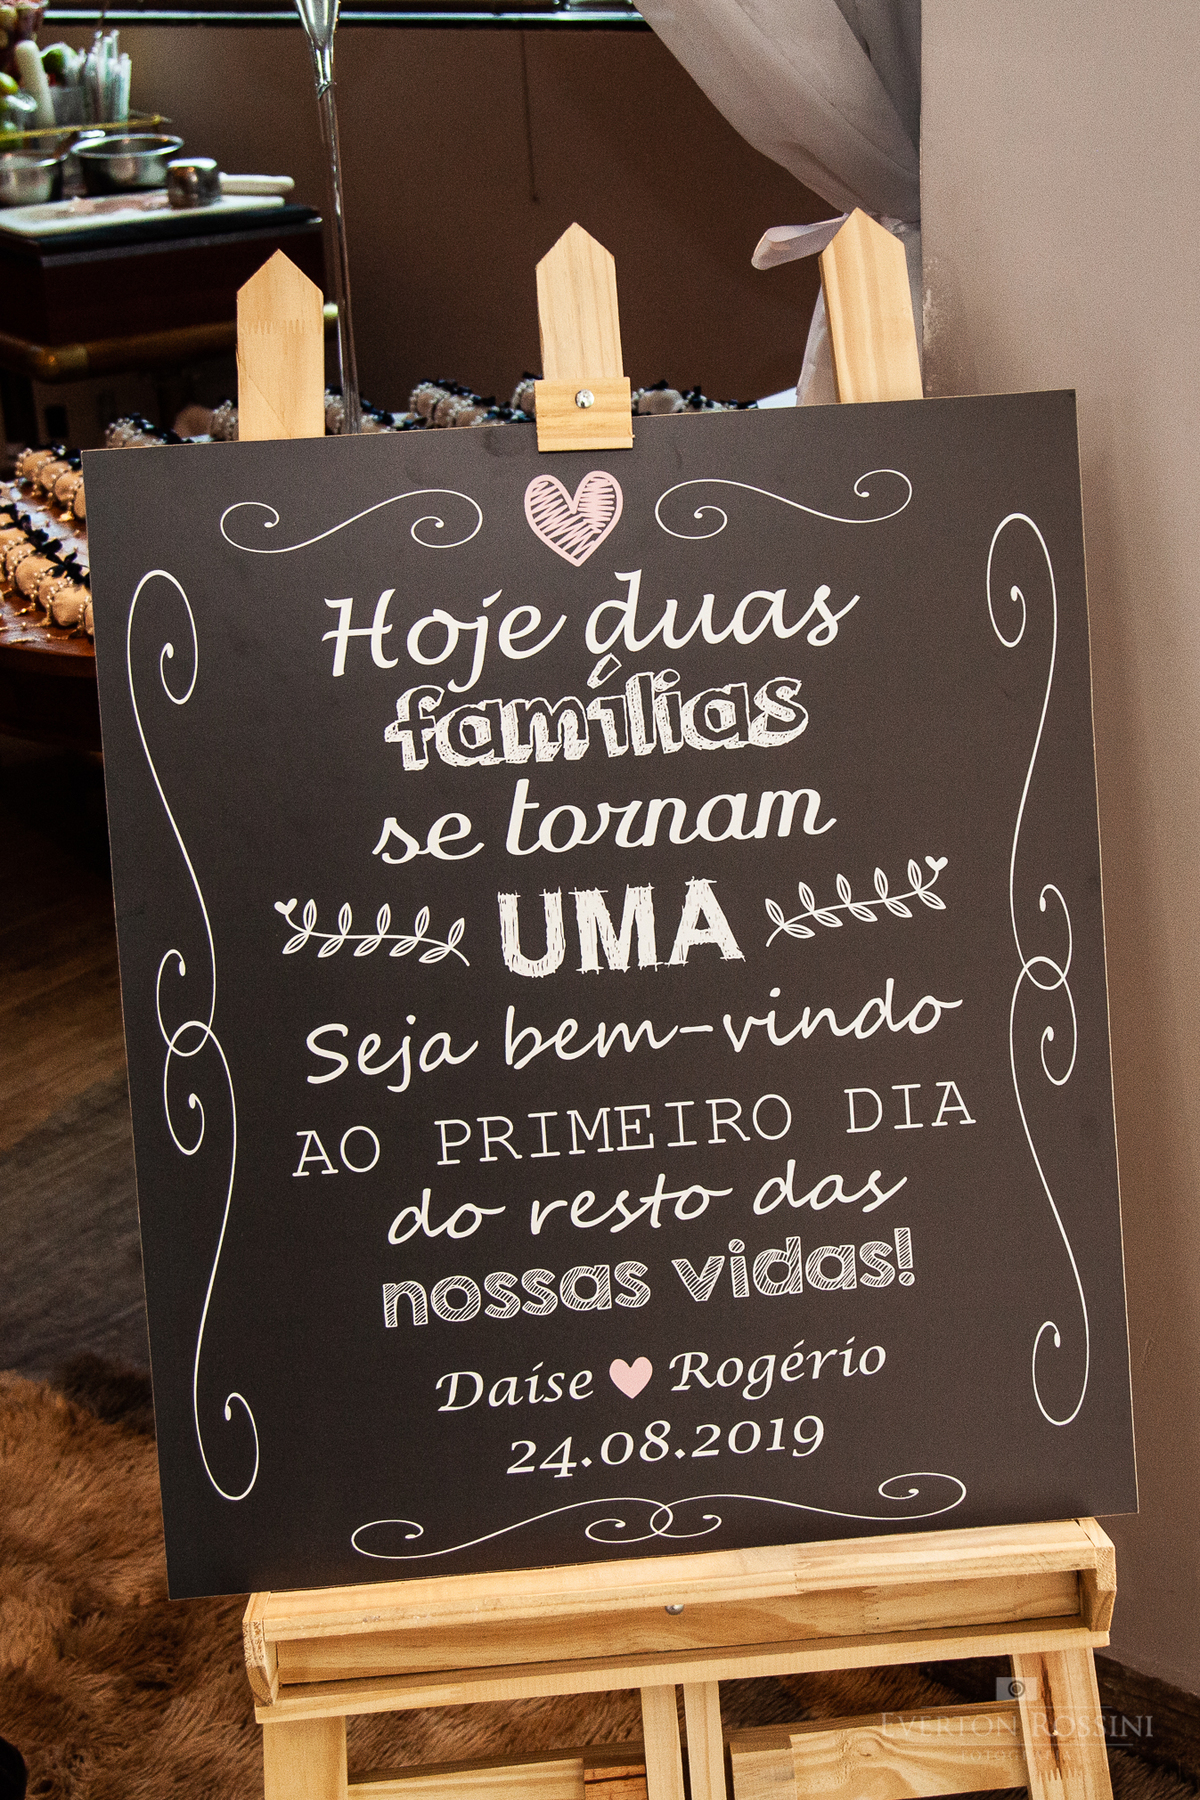 Hoje duas
famílias
se tornam
UMA
Seja bem-vindo
AO PRIMEIRO DIA
do resto das
nossas vidas!
Daise Rogério
24.08.2019
EVERTON ROSSINI
FOTOGRAFIA